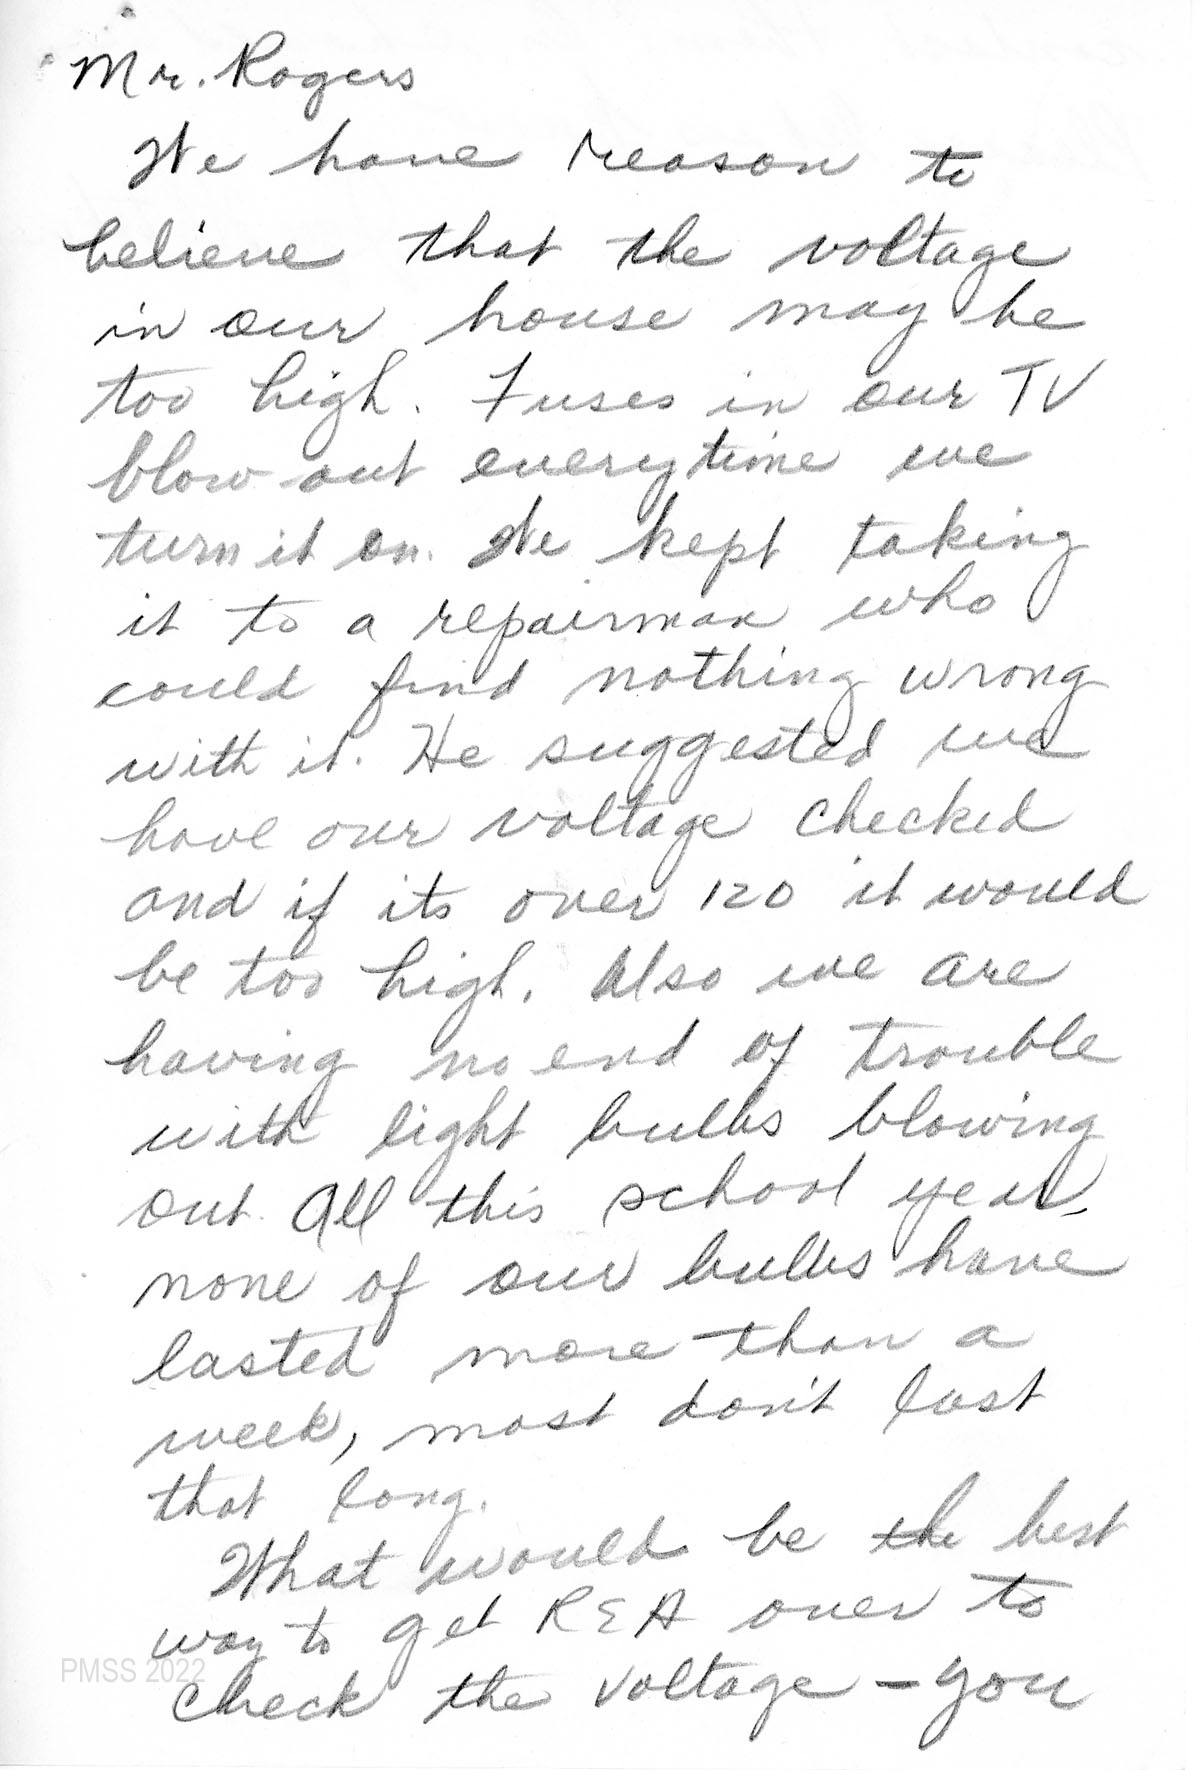 Mr. Rogers
We have reason to
believe that the voltage
in our house may be
too high. Fuses in our TV
blow out everytime we
turn it on. We kept taking
it to a repairman who
could find nothing wrong
with it. He suggested we
have our voltage checked
and if its over 120 it would
be too high. Also we are
having no end of trouble
with light bulbs blowing
out. All this school year,
none of our bulbs have
lasted more than a
week, most don't last
that long.
What would be the best
way to get REA over to
check the voltage - you
PMSS 2022